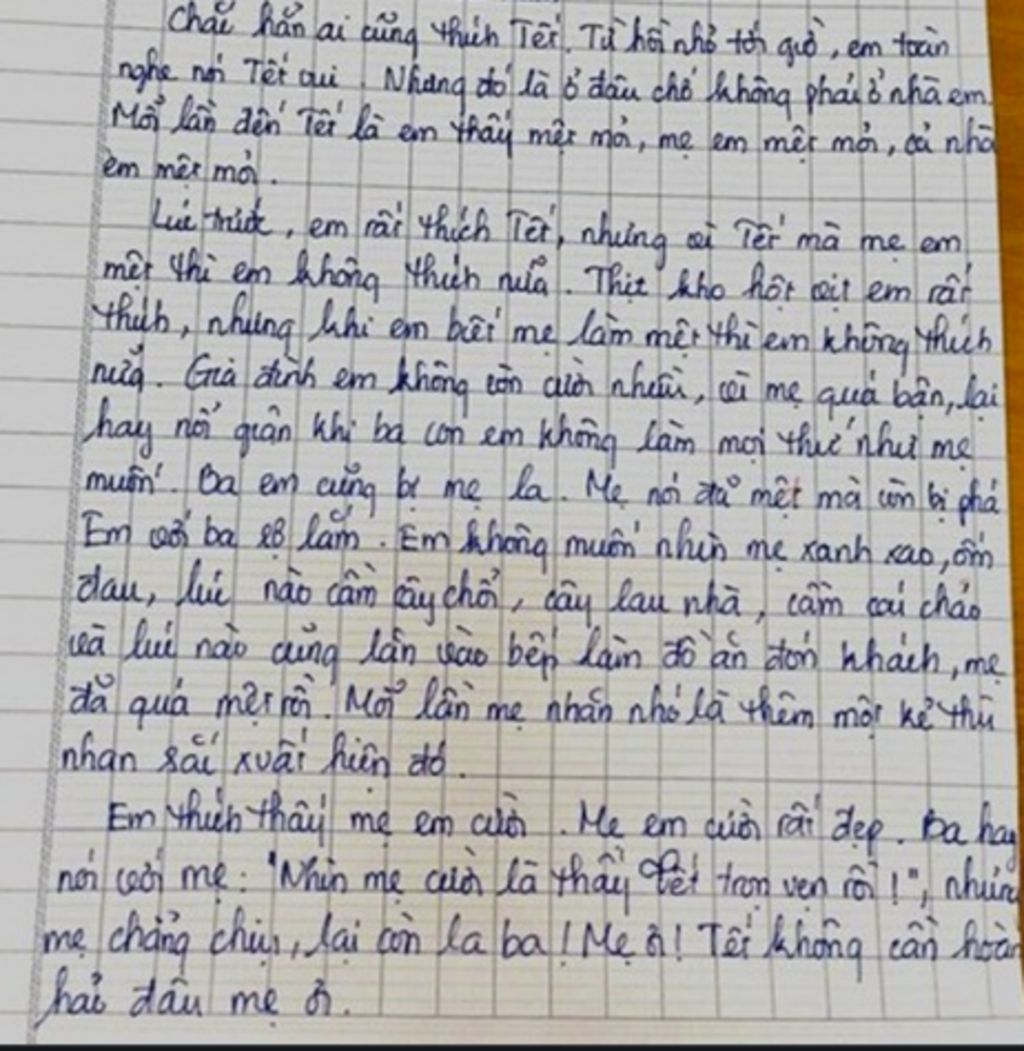 Chắc hẳn ai cũng thích Tết. Từ hồi nhỏ tới giờ, em toàn
nghe nói Tết vui. Nhưng đó là ở đâu chớ không phải ở nhà em.
Mỗi lần đến Tết là em thấy mệt mỏi, mẹ em mệt mỏi, cả nhà
em mệt mỏi.
Lúc trước, em rất thích Tết, nhưng vì Tết mà mẹ em
mệt thì em không thích nữa. Thịt kho hột vịt em rất
thích, nhưng khi em biết mẹ làm mệt thì em không thích
nữa. Gia đình em không còn cười nhiều, vì mẹ quá bận, lại
hay nổi giận khi ba con em không làm mọi thứ như mẹ
muốn. Ba em cũng bị mẹ la. Mẹ nói đã mệt mà còn bị phá
Em với ba sợ lắm. Em không muốn nhìn mẹ xanh xao, ốm
đau, lúc nào cầm cây chổi, cây lau nhà, cầm cái chảo
và lúc nào cũng lăn vào bếp làm đồ ăn đón khách, mẹ
đã quá mệt rồi. Mỗi lần mẹ nhăn nhó là thêm một kẻ thù
nhan sắc xuất hiện đó.
Em thích thấy mẹ em cười. Mẹ em cười rất đẹp. Ba hay
nói với mẹ: "Nhìn mẹ cười là thấy Tết trọn vẹn rồi!", nhưng
mẹ chẳng chịu, lại còn la ba! Mẹ ơi! Tết không cần hoàn
hảo đâu mẹ ơi.